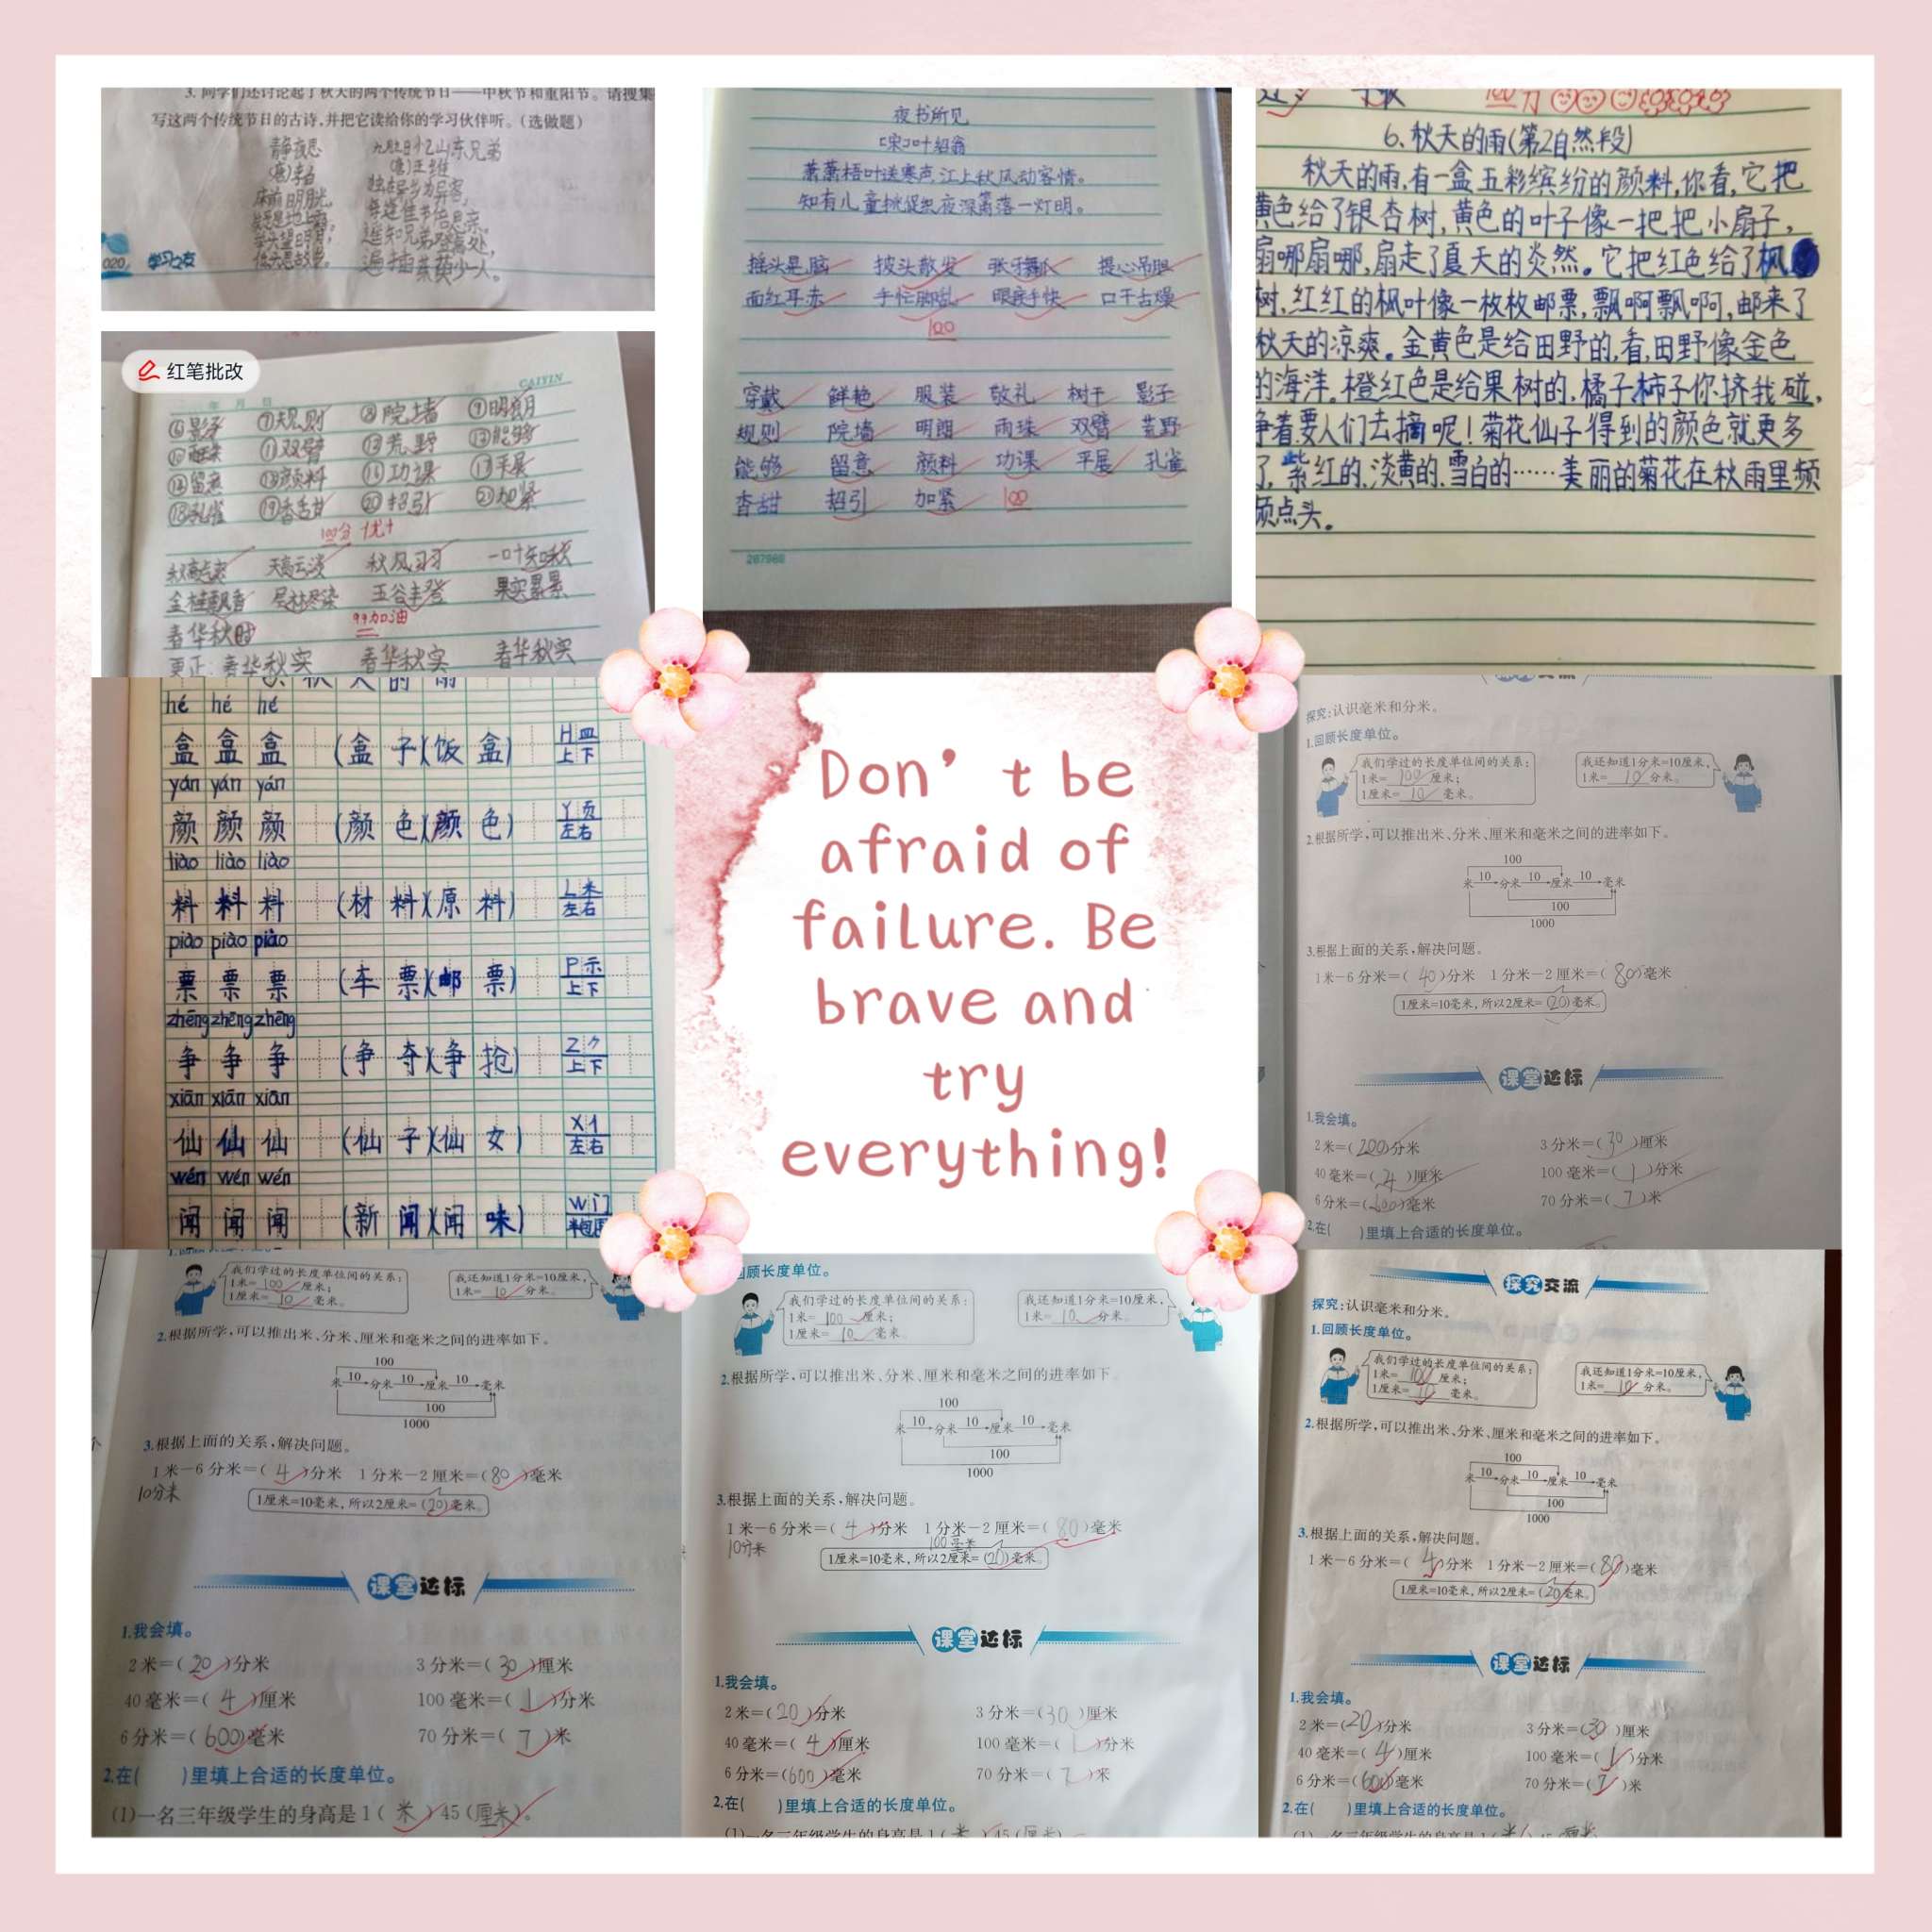 3. 同学们还讨论起了秋天的两个传统节日——中秋节和重阳节。请搜集
写这两个传统节日的古诗,并把它读给你的学习伙伴听。(选做题)
静夜思
(唐)李白
床前明月光,
低头思故乡。
九月九日忆山东兄弟
(唐)王维
独在异乡为异客,
每逢佳节倍思亲。
遥知兄弟登高处,
遍插茱萸少一人。
020
学习之友
红笔批改
CAIYIN
年 月 日
⑥影子 ⑦规则 ⑧院墙 ⑨明朗
⑪双臂 ⑫荒野 ⑬能够
⑭留意 ⑮颜料 ⑯功课 ⑰平展
⑱孔雀 ⑲香甜 ⑳招引 ㉑加紧
100分 优+
秋高气爽 天高云淡 秋风习习 一叶知秋
金桂飘香 层林尽染 五谷丰登 果实累累
99加油
春华秋
更正: 春华秋实 春华秋实 春华秋实
夜书所见
[宋]叶绍翁
萧萧梧叶送寒声,江上秋风动客情。
知有儿童挑促织,夜深篱落一灯明。
摇头晃脑 披头散发 张牙舞爪 提心吊胆
面红耳赤 手忙脚乱 眼疾手快 口干舌燥
100
穿戴 鲜艳 服装 敬礼 树干 影子
规则 院墙 明朗 雨珠 双臂 荒野
能够 留意 颜料 功课 平展 孔雀
香甜 招引 加紧 100
287982
100分
6.秋天的雨(第2自然段)
秋天的雨,有一盒五彩缤纷的颜料,你看,它把
黄色给了银杏树,黄色的叶子像一把把小扇子,
扇哪扇哪,扇走了夏天的炎热。它把红色给了枫
树,红红的枫叶像一枚枚邮票,飘啊飘啊,邮来了
秋天的凉爽。金黄色是给田野的,看,田野像金色
的海洋。橙红色是给果树的,橘子柿子你挤我碰,
争着要人们去摘呢!菊花仙子得到的颜色就更多
了,紫红的、淡黄的、雪白的……美丽的菊花在秋雨里频
频点头。
秋天的雨
hé hé hé
盒 盒 盒 (盒子)(饭盒) H 皿 上下
yán yán yán
颜 颜 颜 (颜色)(颜色) Y 页 左右
liào liào liào
料 料 料 (材料)(原料) L 米 左右
piào piào piào
票 票 票 (车票)(邮票) P 示 上下
zhēng zhēng zhēng
争 争 争 (争夺)(争抢) Z ⺈ 上下
xiān xiān xiān
仙 仙 仙 (仙子)(仙女) X 亻 左右
wén wén wén
闻 闻 闻 (新闻)(闻味) W 门 半包围
Don't be
afraid of
failure. Be
brave and
try
everything!
探究:认识毫米和分米。
1.回顾长度单位。
我们学过的长度单位间的关系:
1米=100厘米;
1厘米=10毫米。
我还知道1分米=10厘米,
1米=10分米。
2.根据所学,可以推出米、分米、厘米和毫米之间的进率如下。
100
米 10 分米 10 厘米 10 毫米
100
1000
3.根据上面的关系,解决问题。
1米-6分米=(40)分米 1分米-2厘米=(80)毫米
1厘米=10毫米,所以2厘米=(20)毫米。
课堂达标
1.我会填。
2米=(200)分米 3分米=(30)厘米
40毫米=(4)厘米 100毫米=(1)分米
6分米=(600)毫米 70分米=(7)米
2.在( )里填上合适的长度单位。
我们学过的长度单位间的关系:
1米=100厘米;
1厘米=10毫米。
我还知道1分米=10厘米,
1米=10分米。
2.根据所学,可以推出米、分米、厘米和毫米之间的进率如下。
100
米 10 分米 10 厘米 10 毫米
100
1000
3.根据上面的关系,解决问题。
1米-6分米=(4)分米 1分米-2厘米=(80)毫米
10分米
1厘米=10毫米,所以2厘米=(20)毫米。
课堂达标
1.我会填。
2米=(20)分米 3分米=(30)厘米
40毫米=(4)厘米 100毫米=(1)分米
6分米=(600)毫米 70分米=(7)米
2.在( )里填上合适的长度单位。
(1)一名三年级学生的身高是1(米)45(厘米)。
回顾长度单位。
我们学过的长度单位间的关系:
1米=100厘米;
1厘米=10毫米。
我还知道1分米=10厘米,
1米=10分米。
2.根据所学,可以推出米、分米、厘米和毫米之间的进率如下。
100
米 10 分米 10 厘米 10 毫米
100
1000
3.根据上面的关系,解决问题。
1米-6分米=(4)分米 1分米-2厘米=(80)毫米
10分米 100毫米
1厘米=10毫米,所以2厘米=(20)毫米。
课堂达标
1.我会填。
2米=(20)分米 3分米=(30)厘米
40毫米=(4)厘米 100毫米=(1)分米
6分米=(600)毫米 70分米=(7)米
2.在( )里填上合适的长度单位。
(1)一名三年级学生的身高是1(米)45(厘米)
探究交流
探究:认识毫米和分米。
1.回顾长度单位。
我们学过的长度单位间的关系:
1米=100厘米;
1厘米=10毫米。
我还知道1分米=10厘米,
1米=10分米。
2.根据所学,可以推出米、分米、厘米和毫米之间的进率如下。
100
米 10 分米 10 厘米 10 毫米
100
1000
3.根据上面的关系,解决问题。
1米-6分米=(4)分米 1分米-2厘米=(80)毫米
1厘米=10毫米,所以2厘米=(20)毫米。
课堂达标
1.我会填。
2米=(20)分米 3分米=(30)厘米
40毫米=(4)厘米 100毫米=(1)分米
6分米=(600)毫米 70分米=(7)米
2.在( )里填上合适的长度单位。